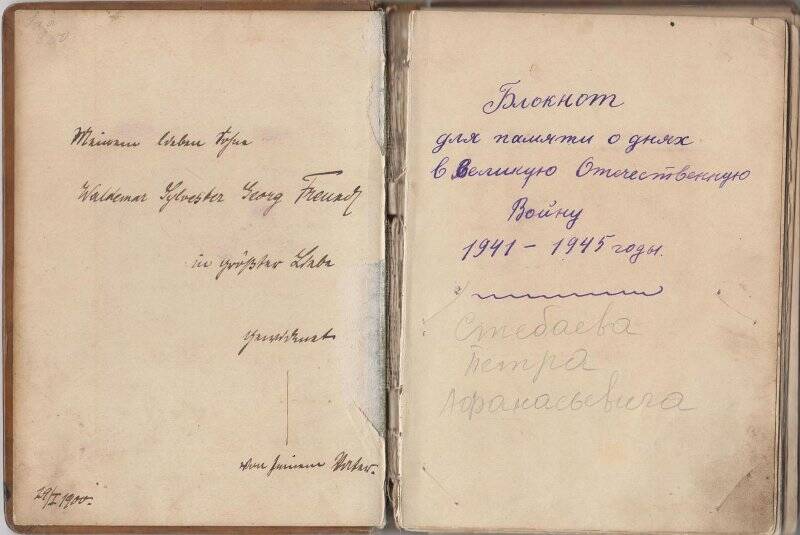 Meinem lieben Sohne
Waldemar Sylvester Georg Freund
in größter Liebe
gewidmet
von seinem Vater.
29/I 1900.
Блокнот
для памяти о днях
в Великую Отечественную
Войну
1941 – 1945 годы.
Стебаева
Петра
Афанасьевича